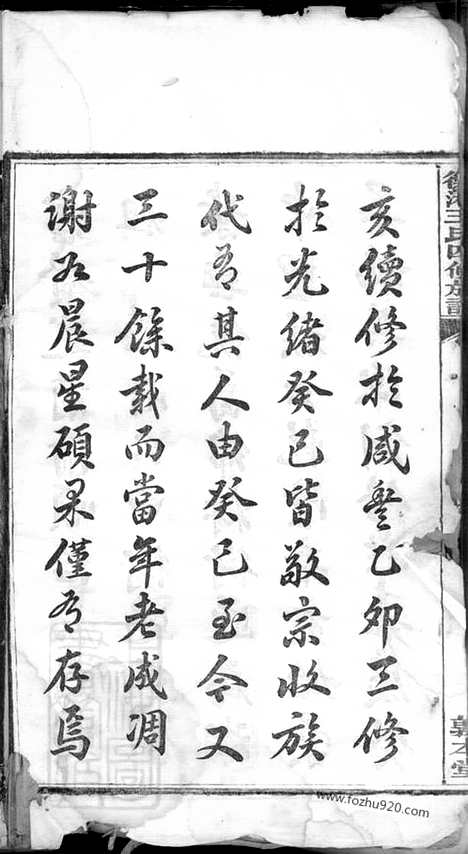 亥續修於咸豐乙卯三修
於光緒癸巳皆敬宗收族
代有其人由癸巳至今又
三十餘載而當年老成凋
謝如晨星碩果僅有存焉
王氏四修族譜
www.fozhu920.com